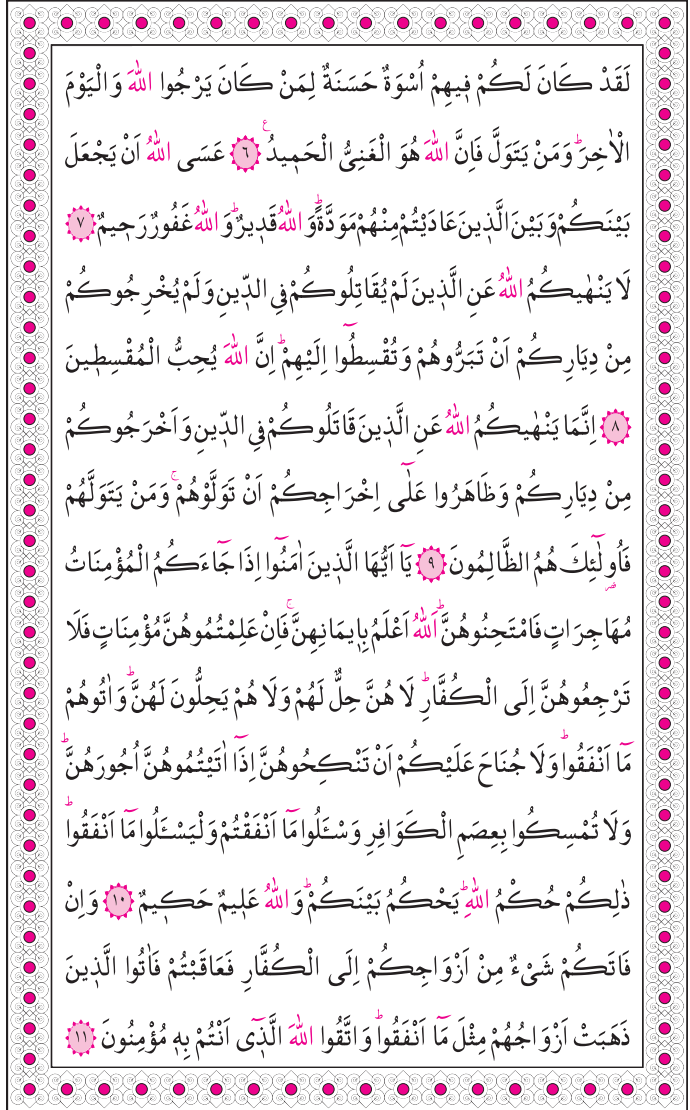 لَقَدْ كَانَ لَكُمْ فٖيهِمْ اُسْوَةٌ حَسَنَةٌ لِمَنْ كَانَ يَرْجُوا اللّٰهَ وَالْيَوْمَ
الْاٰخِرَؕ وَمَنْ يَتَوَلَّ فَاِنَّ اللّٰهَ هُوَ الْغَنِىُّ الْحَمٖيدُࣖ ﴿٦﴾ عَسَى اللّٰهُ اَنْ يَجْعَلَ
بَيْنَكُمْ وَبَيْنَ الَّذٖينَ عَادَيْتُمْ مِنْهُمْ مَوَدَّةًؕ وَاللّٰهُ قَدٖيرٌؕ وَاللّٰهُ غَفُورٌ رَحٖيمٌ ﴿٧﴾
لَا يَنْهٰيكُمُ اللّٰهُ عَنِ الَّذٖينَ لَمْ يُقَاتِلُوكُمْ فِى الدّٖينِ وَلَمْ يُخْرِجُوكُمْ
مِنْ دِيَارِكُمْ اَنْ تَبَرُّوهُمْ وَتُقْسِطُٓوا اِلَيْهِمْؕ اِنَّ اللّٰهَ يُحِبُّ الْمُقْسِطٖينَ
﴿٨﴾ اِنَّمَا يَنْهٰيكُمُ اللّٰهُ عَنِ الَّذٖينَ قَاتَلُوكُمْ فِى الدّٖينِ وَاَخْرَجُوكُمْ
مِنْ دِيَارِكُمْ وَظَاهَرُوا عَلٰٓى اِخْرَاجِكُمْ اَنْ تَوَلَّوْهُمْۚ وَمَنْ يَتَوَلَّهُمْ
فَاُولٰٓئِكَ هُمُ الظَّالِمُونَ ﴿٩﴾ يَٓا اَيُّهَا الَّذٖينَ اٰمَنُٓوا اِذَا جَٓاءَكُمُ الْمُؤْمِنَاتُ
مُهَاجِرَاتٍ فَامْتَحِنُوهُنَّؕ اَللّٰهُ اَعْلَمُ بِاٖيمَانِهِنَّۚ فَاِنْ عَلِمْتُمُوهُنَّ مُؤْمِنَاتٍ فَلَا
تَرْجِعُوهُنَّ اِلَى الْكُفَّارِؕ لَا هُنَّ حِلٌّ لَهُمْ وَلَا هُمْ يَحِلُّونَ لَهُنَّؕ وَاٰتُوهُمْ
مَٓا اَنْفَقُواؕ وَلَا جُنَاحَ عَلَيْكُمْ اَنْ تَنْكِحُوهُنَّ اِذَٓا اٰتَيْتُمُوهُنَّ اُجُورَهُنَّؕ
وَلَا تُمْسِكُوا بِعِصَمِ الْكَوَافِرِ وَسْـَٔلُوا مَٓا اَنْفَقْتُمْ وَلْيَسْـَٔلُوا مَٓا اَنْفَقُواؕ
ذٰلِكُمْ حُكْمُ اللّٰهِؕ يَحْكُمُ بَيْنَكُمْؕ وَاللّٰهُ عَلٖيمٌ حَكٖيمٌ ﴿١٠﴾ وَاِنْ
فَاتَكُمْ شَیْءٌ مِنْ اَزْوَاجِكُمْ اِلَى الْكُفَّارِ فَعَاقَبْتُمْ فَاٰتُوا الَّذٖينَ
ذَهَبَتْ اَزْوَاجُهُمْ مِثْلَ مَٓا اَنْفَقُواؕ وَاتَّقُوا اللّٰهَ الَّذٖٓى اَنْتُمْ بِهٖ مُؤْمِنُونَ ﴿١١﴾